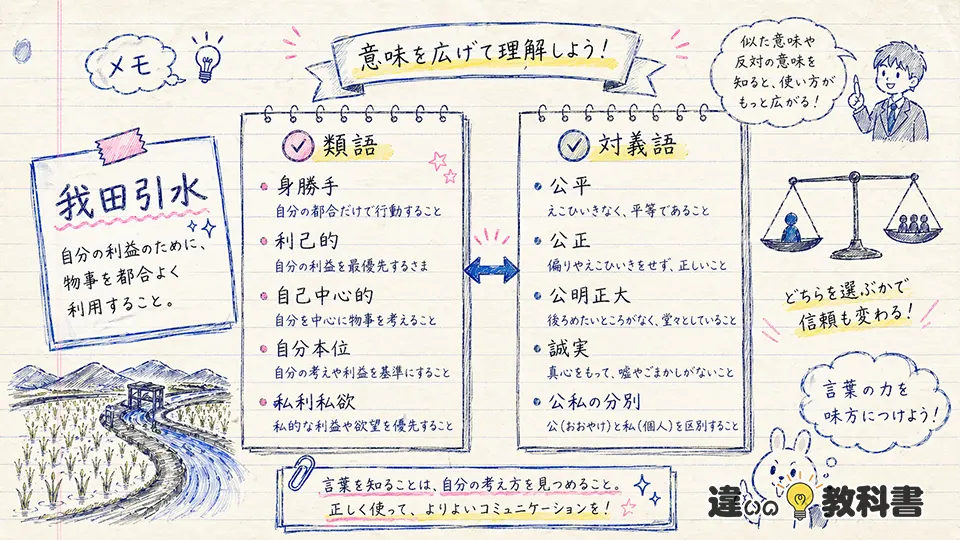 メモ
意味を広げて理解しよう!
似た意味や
反対の意味を
知ると、使い方が
もっと広がる!
我田引水
自分の利益のために、
物事を都合よく
利用すること。
類語
身勝手
自分の都合だけで行動すること
利己的
自分の利益を最優先するさま
自己中心的
自分を中心に物事を考えること
自分本位
自分の考えや利益を基準にすること
私利私欲
私的な利益や欲望を優先すること
対義語
公平
えこひいきなく、平等であること
公正
偏りやえこひいきをせず、正しいこと
公明正大
後ろめたいところがなく、堂々としていること
誠実
真心をもって、嘘やごまかしがないこと
公私の分別
公(おおやけ)と私(個人)を区別すること
どちらを選ぶかで
信頼も変わる!
言葉の力を
味方につけよう!
言葉を知ることは、自分の考え方を見つめること。
正しく使って、よりよいコミュニケーションを!
違いの教科書